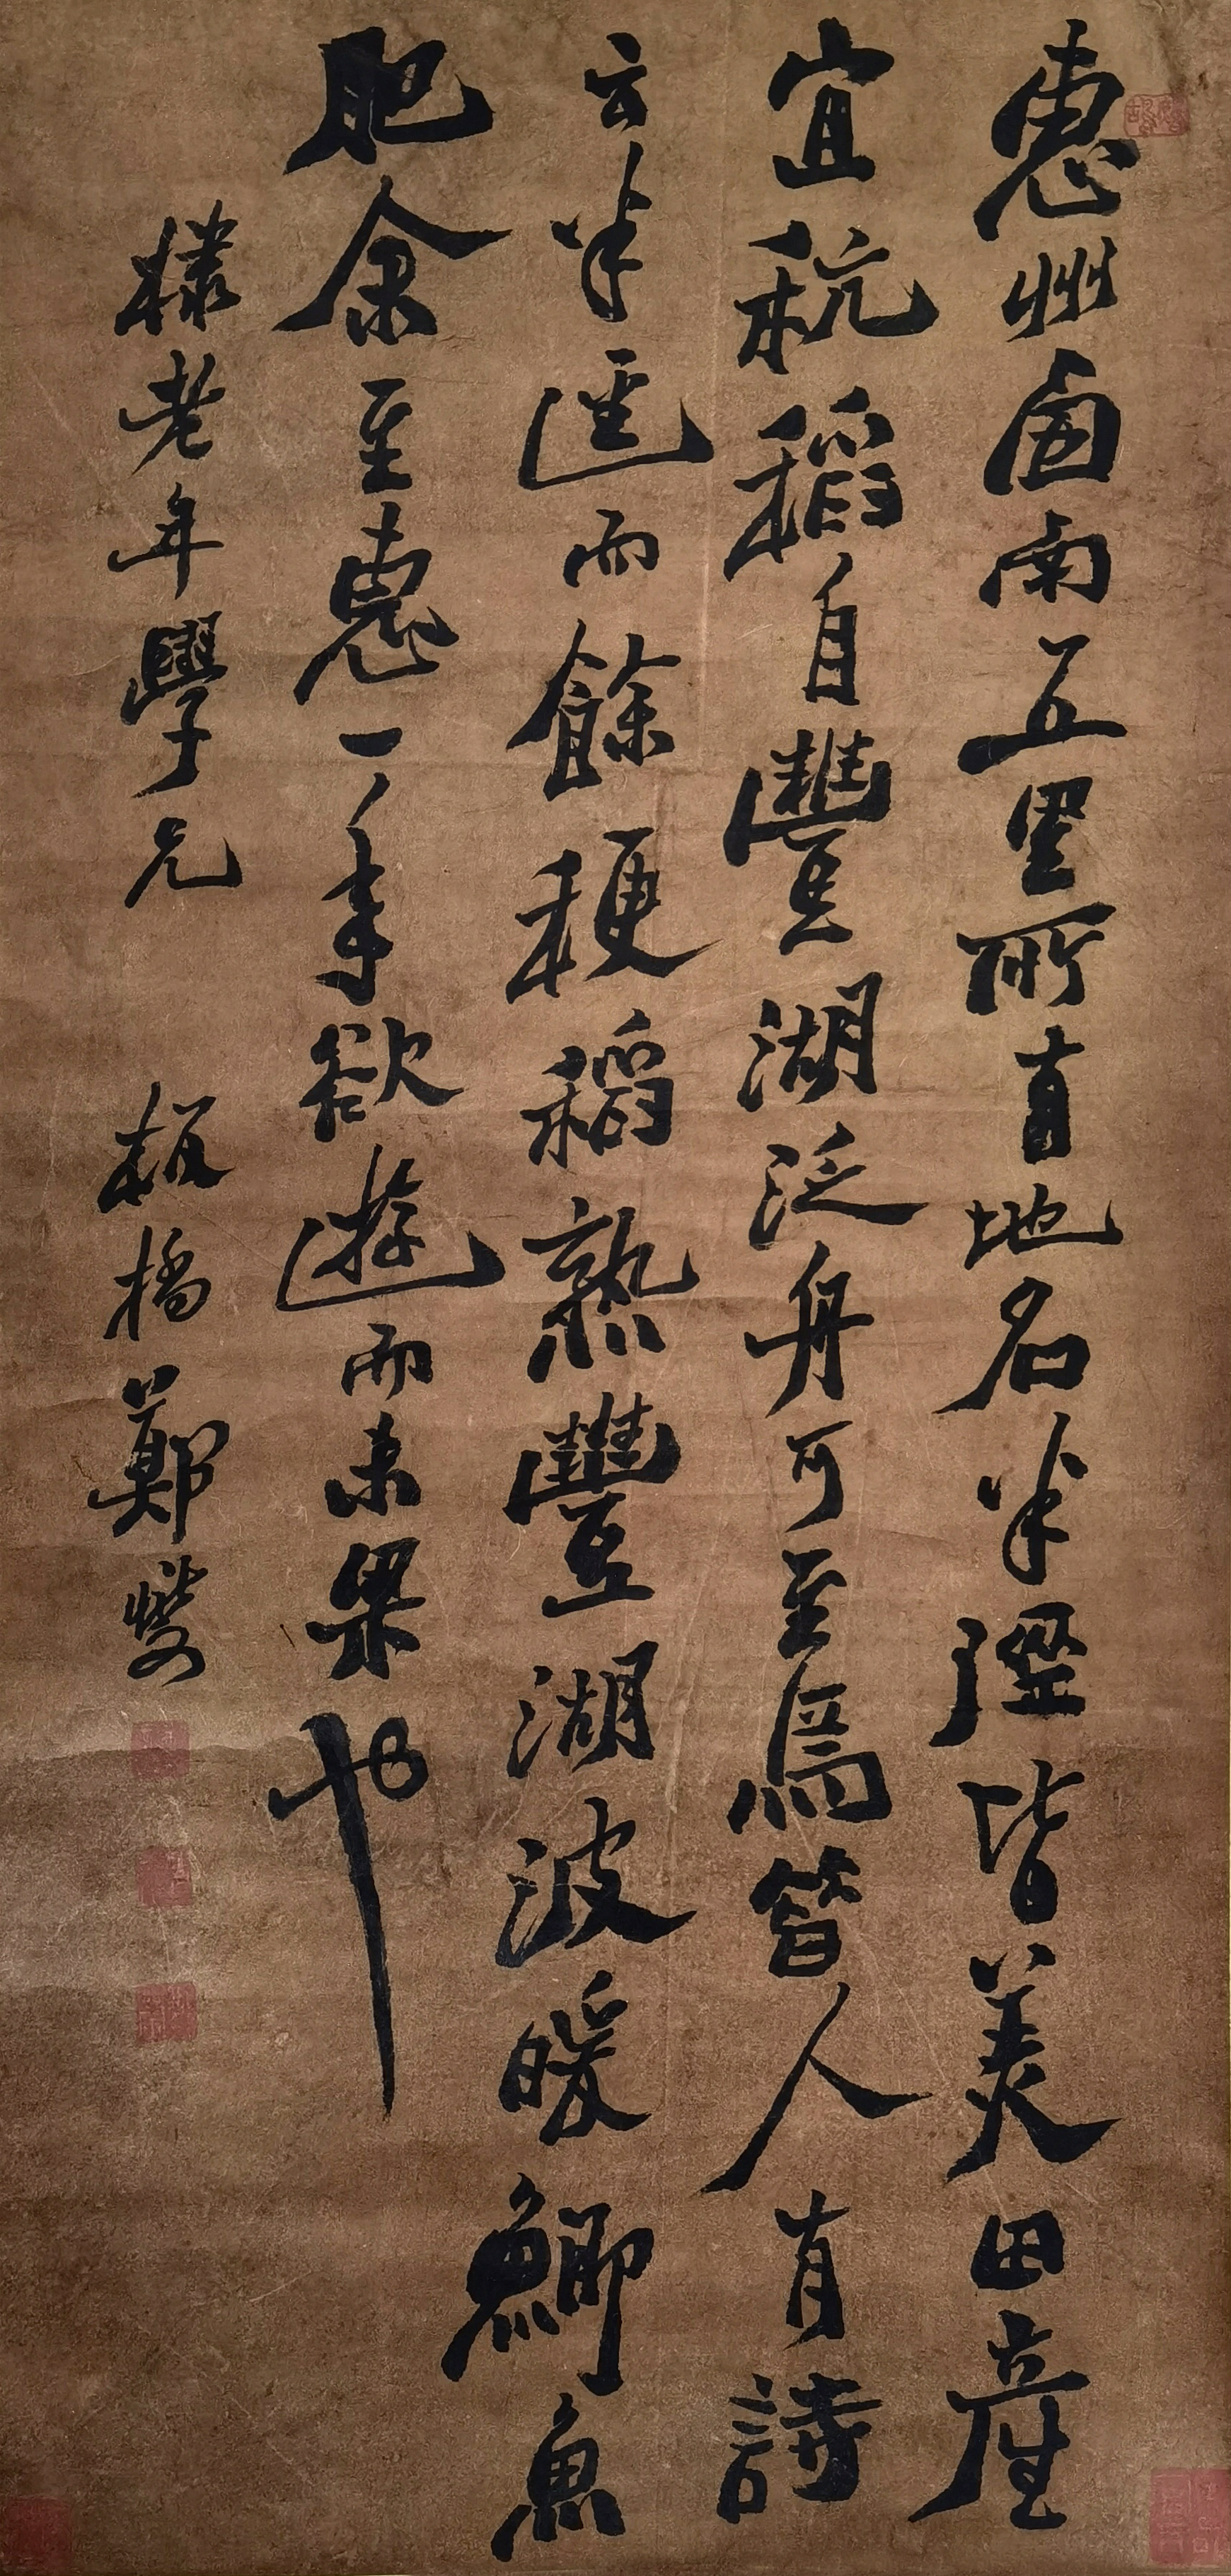 惠州西南五里所有地名半徑皆美田產
宜秔稻自豐湖泛舟可至焉昔人有詩
云半逕而餘稉稻熟豐湖波暖鯽魚
肥余至惠一年欲遊而未果也
棣老年學兄 板橋鄭燮